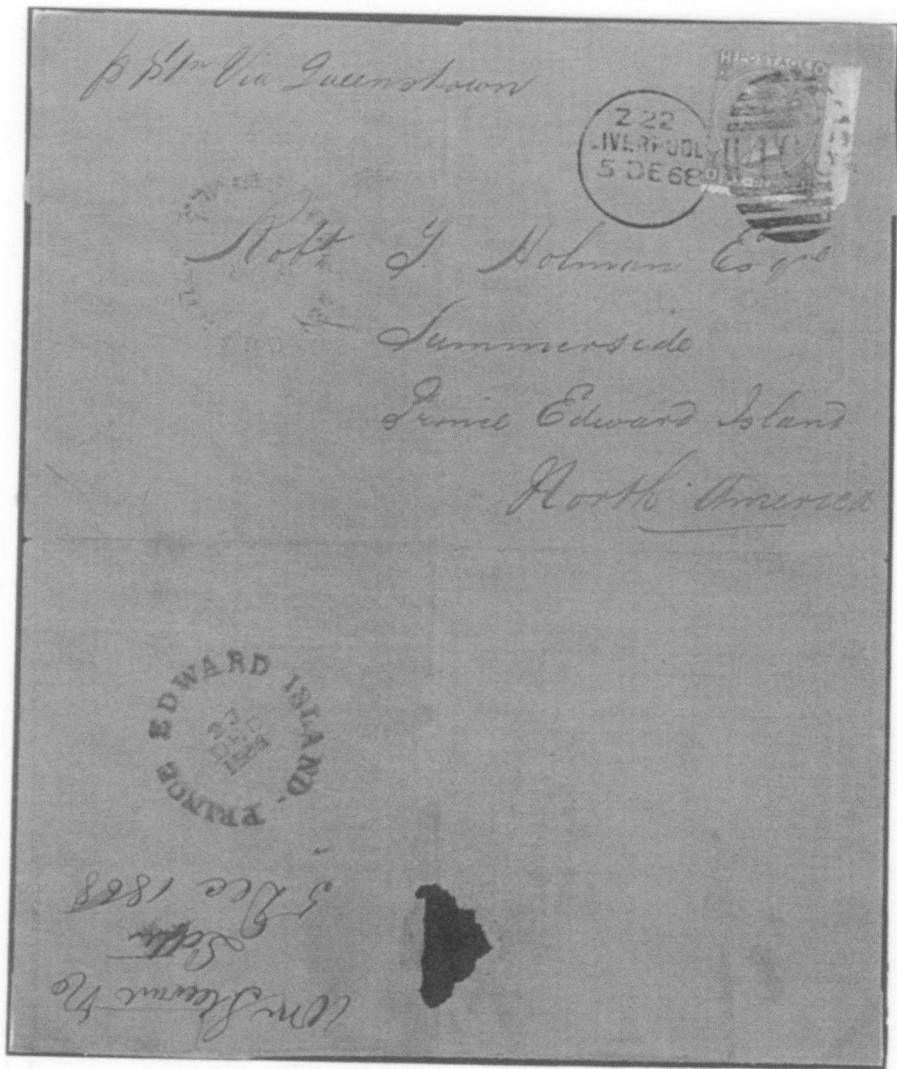 p Str Via Queenstown
Z 22
LIVERPOOL
5 DE 68
POSTAGE
Robt T. Holman Esqre
Summerside
Prince Edward Island
North America
PRINCE EDWARD ISLAND
5 Dec 1868
Wm